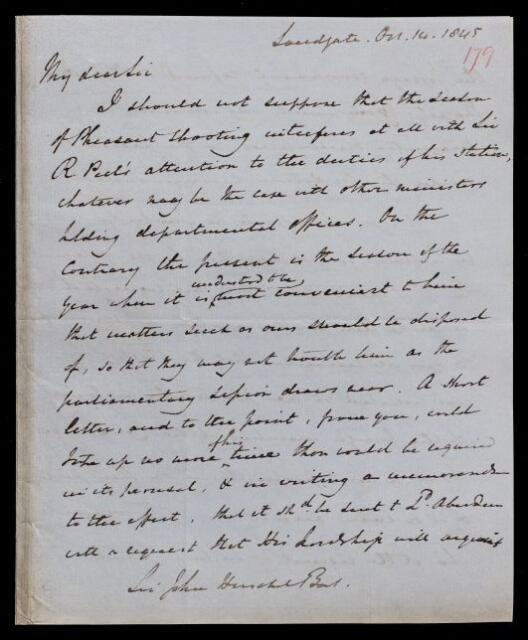 Sandgate. Oct. 14. 1845
179
My dear Sir
I should not suppose that the season
of Pheasant shooting interferes at all with Sir
R Peel's attention to the duties of his station,
whatever may be the case with other ministers
holding departmental offices. On the
Contrary the present is the season of the
understood to be
year when it is most convenient to him
that matters such as ours should be disposed
of, so that they may not trouble him as the
parliamentary session draws near. A short
letter, and to the point, from you, would
of his
take up no more time than would be required
in its perusal, & in writing a memorandum
to the effect, that it shd. be sent to Ld. Aberdeen
with a request that His Lordship will
Sir John Herschel Bart.